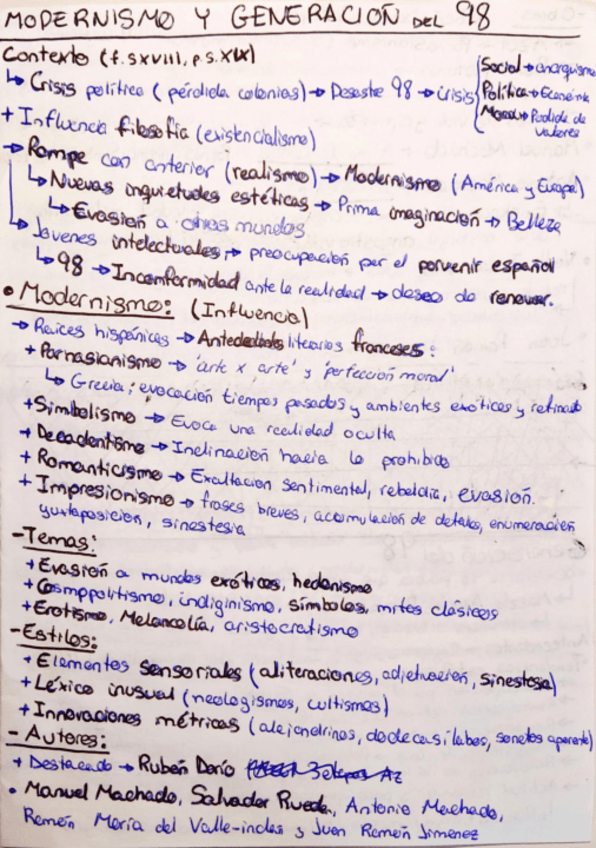 MODERNISMO Y GENERACIÓN DEL 98
Contexto (f. s XVIII, p. s. XIX)
↳ Crisis política (pérdida colonias) → Desastre 98 → crisis
Social → anarquismo
Política → Economía
Moral → Perdida de valores
+ Influencia filosofía (existencialismo)
→ Rompe con anterior (realismo) → Modernismo (América y Europa)
↳ Nuevas inquietudes estéticas → Prima imaginación → Belleza
↳ Evasión a otros mundos
↳ Jóvenes intelectuales → preocupación por el porvenir español
↳ 98 → Inconformidad ante la realidad → deseo de renovar.
• Modernismo: (Influencia)
→ Raíces hispánicas → Antecedentes literarios franceses:
+ Parnasianismo → 'arte x arte' y 'perfección moral'
↳ Grecia; evocación tiempos pasados y ambientes exóticos y refinado
+ Simbolismo → Evoca una realidad oculta
+ Decadentismo → Inclinación hacia lo prohibido
+ Romanticismo → Exultación sentimental, rebeldía, evasión.
+ Impresionismo → frases breves, accumulación de detalles, enumeración
yuxtaposición, sinestesia
- Temas:
+ Evasión a mundos exóticos, hedonismo
+ Cosmopolitismo, indiginismo, símbolos, mitos clásicos
+ Erotismo, Melancolía, aristocratismo
- Estilos:
+ Elementos sensoriales (aliteraciones, adjetivación, sinestesia)
+ Léxico inusual (neologismos, cultismos)
+ Innovaciones métricas (alejandrinos, dodecasílabos, sonetos
- Autores:
+ Destacado → Rubén Darío
• Manuel Machado, Salvador Rueda, Antonio Machado,
Ramón María del Valle-inclas y Juan Ramón Jimenez